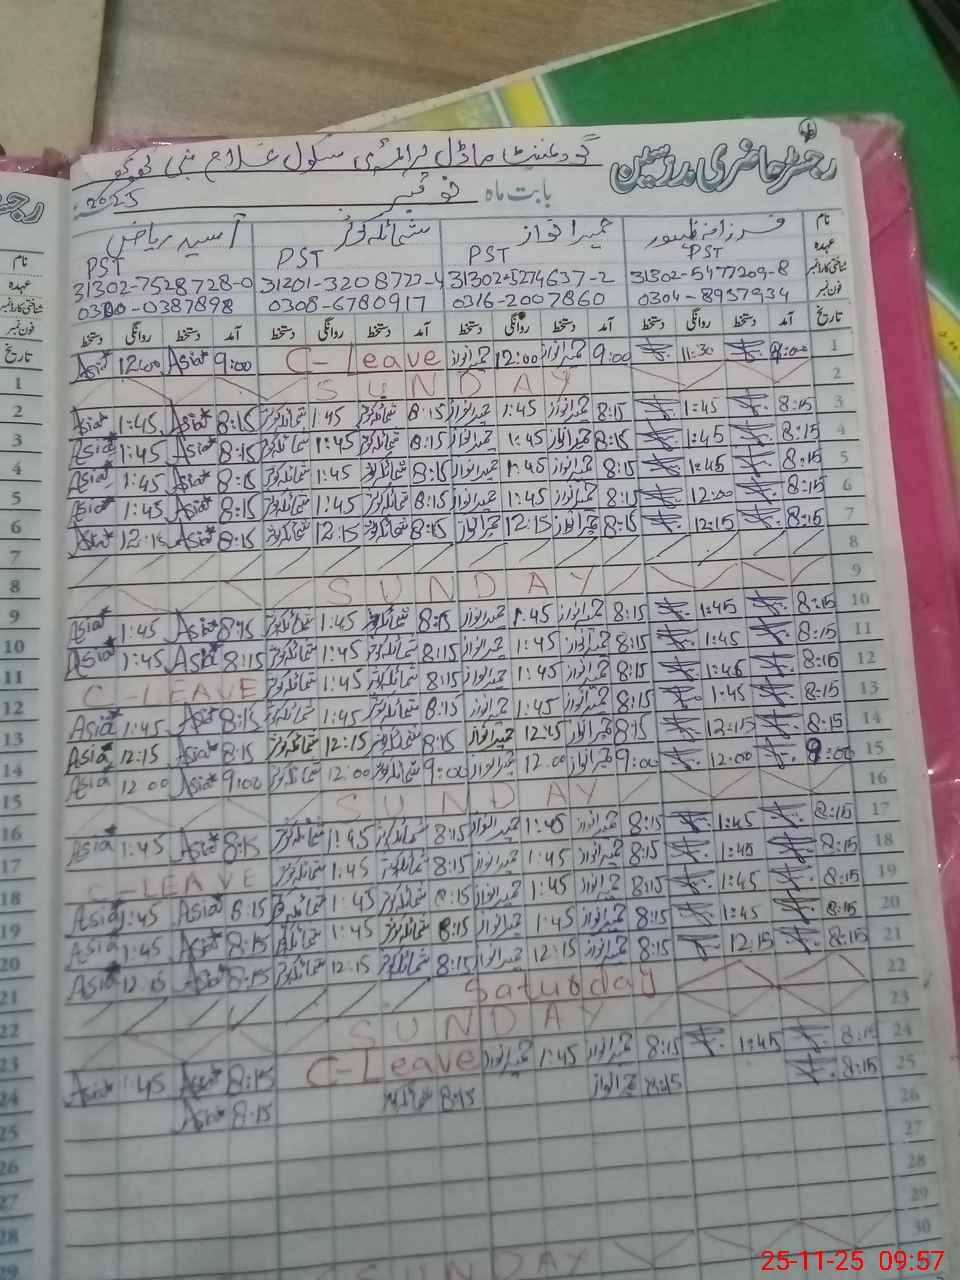 رجسٹر حاضری مدرسین
گورنمنٹ ماڈل پرائمری سکول
بابت ماہ نومبر 2025
نام فرزانہ منظور حمیرا نواز شمائلہ کوثر آسیہ ریاض
عہدہ PST PST PST PST
شناختی کارڈ نمبر 31302-5477209-8 31302-5274637-2 31201-3208722-4 31302-7528728-0
فون نمبر 0304-8957934 0316-2007860 0308-6780917 0300-0387898
تاریخ آمد دستخط روانگی دستخط آمد دستخط روانگی دستخط آمد دستخط روانگی دستخط آمد دستخط روانگی دستخط
1 9:00 11:30 9:00 حمیرا نواز 12:00 حمیرا نواز C-Leave 9:00 Asia 12:00 Asia
2 SUNDAY
3 8:15 1:45 8:15 حمیرا نواز 1:45 حمیرا نواز 8:15 شمائلہ کوثر 1:45 شمائلہ کوثر 8:15 Asia 1:45 Asia
4 8:15 1:45 8:15 حمیرا نواز 1:45 حمیرا نواز 8:15 شمائلہ کوثر 1:45 شمائلہ کوثر 8:15 Asia 1:45 Asia
5 8:15 1:45 8:15 حمیرا نواز 1:45 حمیرا نواز 8:15 شمائلہ کوثر 1:45 شمائلہ کوثر 8:15 Asia 1:45 Asia
6 8:15 12:00 8:15 حمیرا نواز 1:45 حمیرا نواز 8:15 شمائلہ کوثر 1:45 شمائلہ کوثر 8:15 Asia 1:45 Asia
7 8:15 12:15 8:15 حمیرا نواز 12:15 حمیرا نواز 8:15 شمائلہ کوثر 12:15 شمائلہ کوثر 8:15 Asia 12:15 Asia
8
9 SUNDAY
10 8:15 1:45 8:15 حمیرا نواز 1:45 حمیرا نواز 8:15 شمائلہ کوثر 1:45 شمائلہ کوثر 8:15 Asia 1:45 Asia
11 8:15 1:45 8:15 حمیرا نواز 1:45 حمیرا نواز 8:15 شمائلہ کوثر 1:45 شمائلہ کوثر 8:15 Asia 1:45 Asia
12 8:15 1:45 8:15 حمیرا نواز 1:45 حمیرا نواز 8:15 شمائلہ کوثر 1:45 شمائلہ کوثر C-LEAVE
13 8:15 1:45 8:15 حمیرا نواز 1:45 حمیرا نواز 8:15 شمائلہ کوثر 1:45 شمائلہ کوثر 8:15 Asia 1:45 Asia
14 8:15 12:15 8:15 حمیرا نواز حمیرا نواز 8:15 شمائلہ کوثر 12:15 شمائلہ کوثر 8:15 Asia 12:15 Asia
15 9:00 12:00 9:00 حمیرا نواز 12:00 حمیرا نواز 9:00 شمائلہ کوثر 12:00 شمائلہ کوثر 9:00 Asia 12:00 Asia
16 SUNDAY
17 8:15 1:45 8:15 حمیرا نواز 1:45 حمیرا نواز 8:15 شمائلہ کوثر 1:45 شمائلہ کوثر 8:15 Asia 1:45 Asia
18 8:15 1:45 8:15 حمیرا نواز 1:45 حمیرا نواز 8:15 شمائلہ کوثر 1:45 شمائلہ کوثر C-LEAVE
19 8:15 1:45 8:15 حمیرا نواز 1:45 حمیرا نواز 8:15 شمائلہ کوثر 1:45 شمائلہ کوثر 8:15 Asia 1:45 Asia
20 8:15 1:45 8:15 حمیرا نواز 1:45 حمیرا نواز 8:15 شمائلہ کوثر 1:45 شمائلہ کوثر 8:15 Asia 1:45 Asia
21 8:15 12:15 8:15 حمیرا نواز 12:15 حمیرا نواز 8:15 شمائلہ کوثر 12:15 شمائلہ کوثر 8:15 Asia 12:15 Asia
22 Saturday
23 SUNDAY
24 8:15 1:45 8:15 حمیرا نواز 1:45 حمیرا نواز C-Leave 8:15 Asia 1:45 Asia
25 8:15 8:15 حمیرا نواز 8:15 شمائلہ 8:15 Asia
26
27
28
29
30 SUNDAY
نام
عہدہ
شناختی کارڈ نمبر
فون نمبر
تاریخ
1
2
3
4
5
6
7
8
9
10
11
12
13
14
15
16
17
18
19
20
21
22
23
24
25
26
27
28
29
25-11-25 09:57